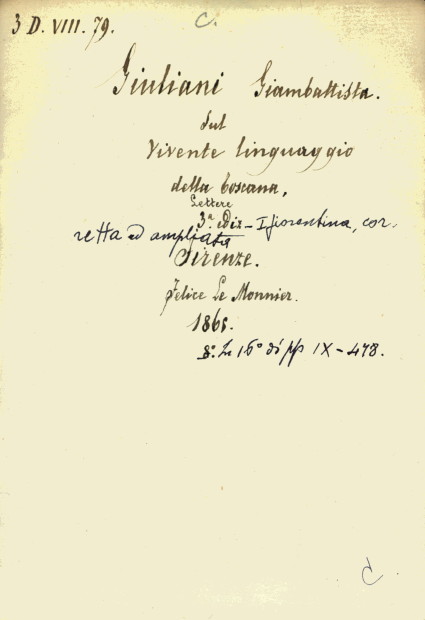 3 D. VIII. 79.
C.
Giuliani Giambattista.
sul
Vivente linguaggio
della Toscana,
Lettere
3ª ediz - I fiorentina, cor-
retta ed ampliata
Firenze.
Felice Le Monnier.
1865.
8.° In 16° di pp IX - 478.
C.